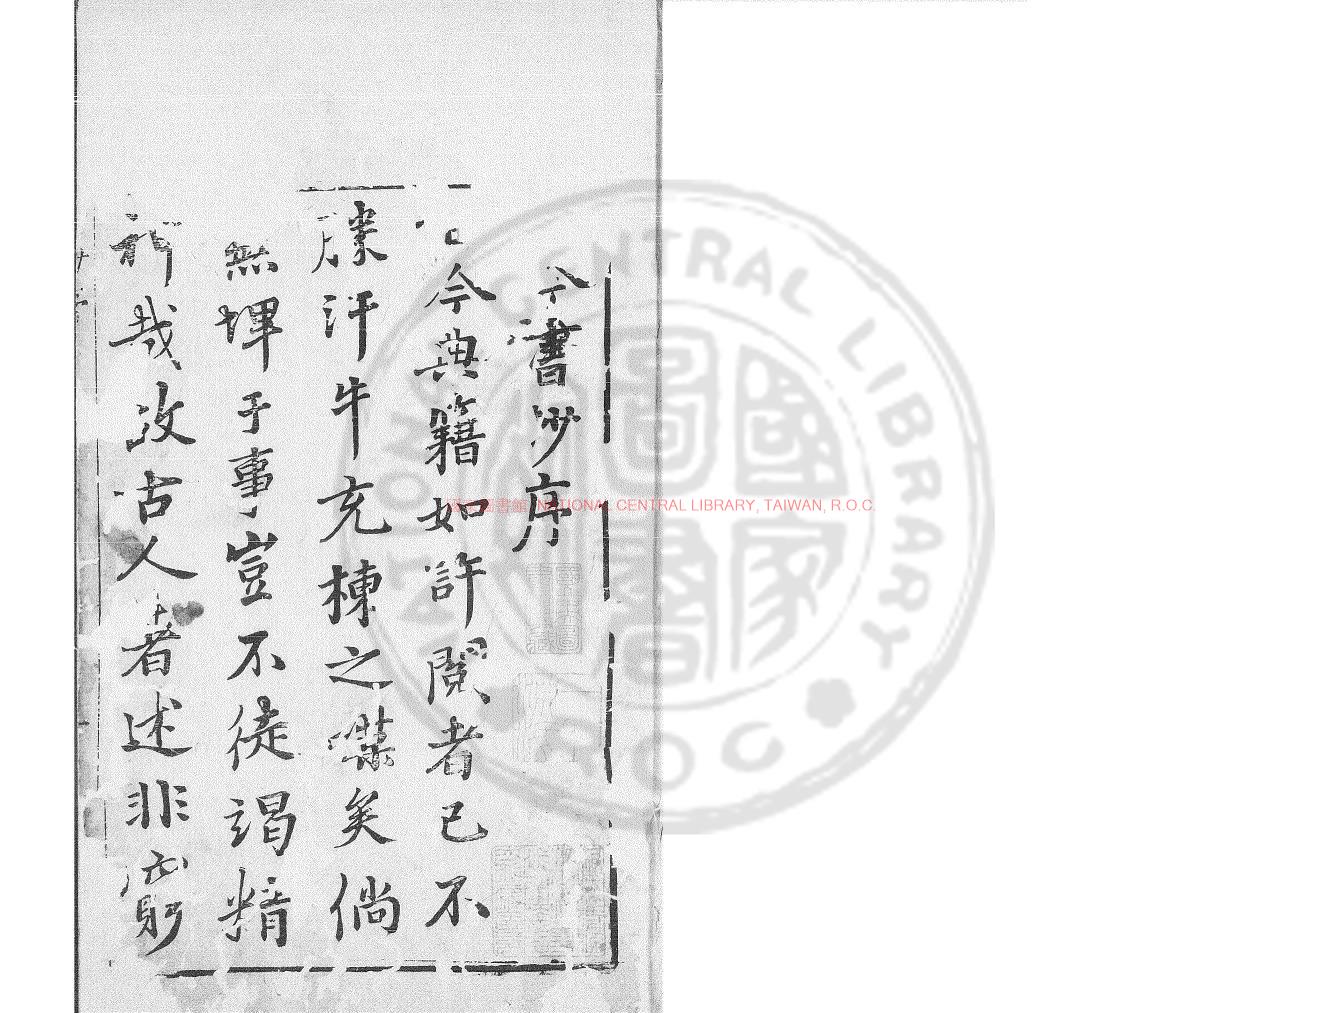 今書序
今典籍如許閱者已不
勝汗牛充棟之嘆矣倘
無埤于事豈不徒竭精
神哉古人著述非窮
NATIONAL CENTRAL LIBRARY, TAIWAN, R.O.C.
NATIONAL CENTRAL LIBRARY
ROC